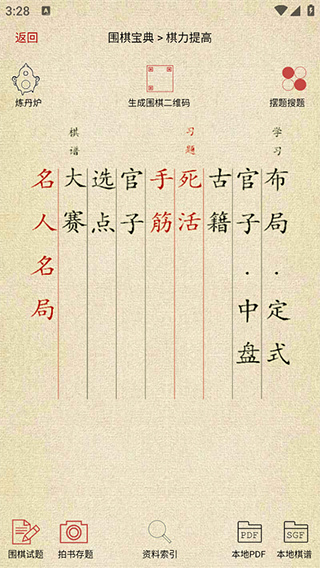 3:28
返回
围棋宝典 > 棋力提高
炼丹炉
生成围棋二维码
摆题搜题
学习
习题
棋谱
布局..定式
官子.中盘
古籍
死活
手筋
官子
选点
大赛
名人名局
围棋试题
拍书存题
资料索引
PDF
本地PDF
SGF
本地棋谱